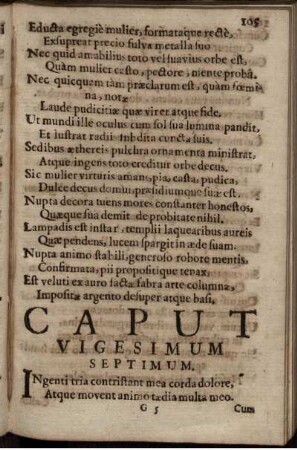 105
Educta egregiè mulier, formataque rectè,
Exsupreat precio fulva metalla suo
Nec quid amabilius toto vel suavius orbe est,
Quàm mulier casto, pectore, mente probâ.
Nec quicquam tàm præclarum est, quàm fœmi
na, notæ
Laude pudicitiæ quæ viret atque fide.
Ut mundi ille oculus cum sol sua lumina pandit,
Et lustrat radiis subdita cuncta suis.
Sedibus æthereis pulchra ornamenta ministrat,
Atque ingens toto creditur orbe decus.
Sic mulier virtutis amans, pia, casta, pudica,
Dulce decus domui, præsidiumque suæ est.
Nupta decora tuens mores constanter honestos,
Quæque sua demit de probitate nihil.
Lampadis est instar, templi laquearibus aureis
Quæ pendens, lucem spargit in æde suam.
Nupta animo stabili, generoso robore mentis,
Confirmata, pii propositique tenax.
Est veluti ex auro facta fabra arte columna,
Impositæ argento desuper atque basi.
CAPUT
VIGESIMUM
SEPTIMUM.
INgenti tria contristant mea corda dolore,
Atque movent animo tædia multa meo.
G 5 Cum